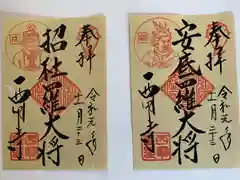 奉拝
招杜羅大将
一畑寺
令和元年
十一月二十三日
奉拝
安底羅大将
一畑寺
令和元年
十一月二十三日